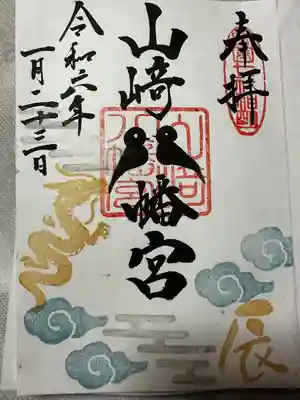 奉拝
山崎八幡宮
令和六年
一月二十三日
辰